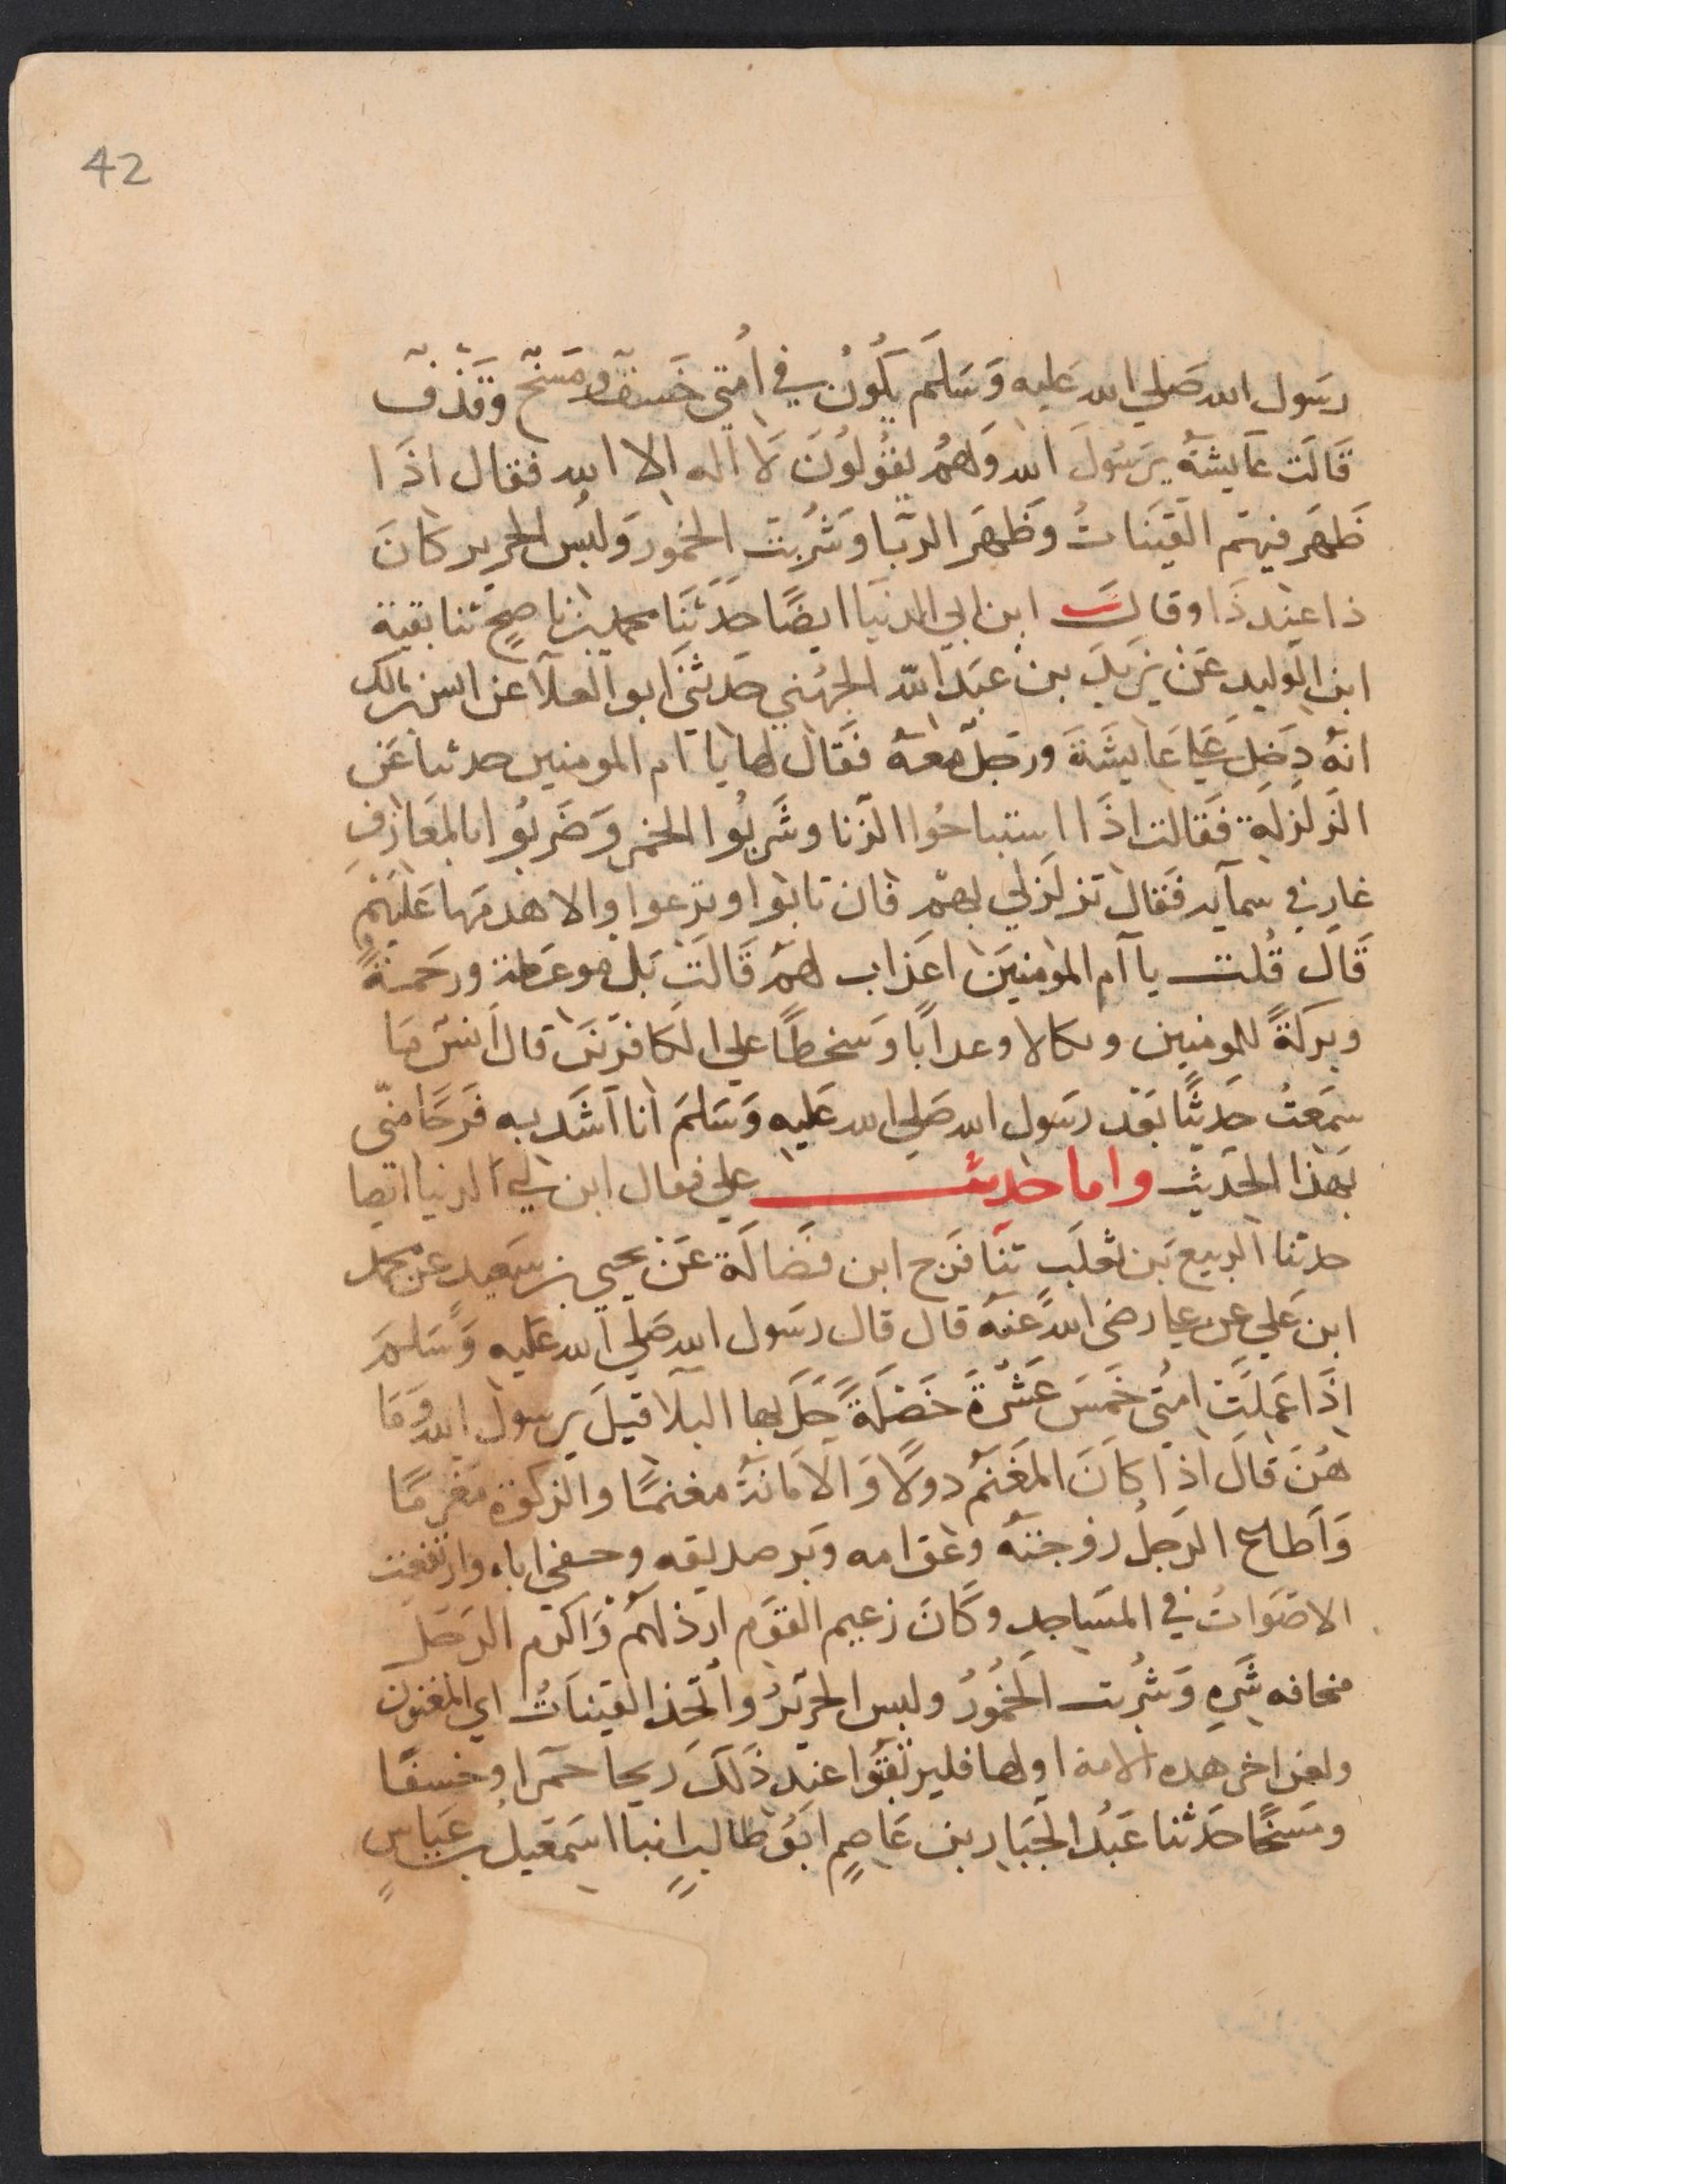 42
رسول الله صلي الله عليه وسلم يكون في امتي خسف ومسخ وقذف
قالت عايشة يرسول الله وهم يقولون لا اله الا الله فقال اذا
ظهر فيهم القينات وظهر الربا وشربت الخمور ولبس الحرير كان
ذا عند ذا وقال ابن ابي الدنيا ايضا حدثنا محمد بن ناصح ثنا بقية
ابن الوليد عن يزيد بن عبد الله الجهني حدثني ابو العلا عن انس بن مالك
انه دخل علي عايشة ورجل معه فقال لها يا ام المومنين حدثنا عن
الزلزلة فقالت اذا استباحوا الزنا وشربوا الخمر وضربوا بالمعازف
غار في سمآيه فقال تزلزلي بهم فان تابوا ونزعوا والا هدمها عليهم
قال قلت يا ام المومنين اعذاب لهم قالت بل موعظة ورحمة
وبركة للمومنين ونكالا وعذابا وسخطا علي الكافرين قال انس ما
سمعت حديثا بعد رسول الله صلي الله عليه وسلم انا اشد به فرحا مني
بهذا الحديث واما حديث علي فقال ابن ابي الدنيا ايضا
حدثنا الربيع بن ثعلب ثنا فرج ابن فضالة عن يحيي بن سعيد عن محمد
ابن علي عن علي رضي الله عنه قال قال رسول الله صلي الله عليه وسلم
اذا عملت امتي خمس عشرة خصلة حل بها البلا قيل يرسول الله وما
هن قال اذا كان المغنم دولا والامانة مغنما والزكوة مغرما
واطاع الرجل زوجته وعق امه وبر صديقه وجفي اباه وارتفعت
الاصوات في المساجد وكان زعيم القوم ارذلهم واكرم الرجل
مخافه شره وشربت الخمور ولبس الحرير واتخذ القينات اي المغنون
ولعن اخر هذه الامة اولها فليرتقبوا عند ذلك ريحا حمرا وخسفا
ومسخا حدثنا عبد الجبار بن عاصم ابو طالب انبا اسمعيل بن عياش